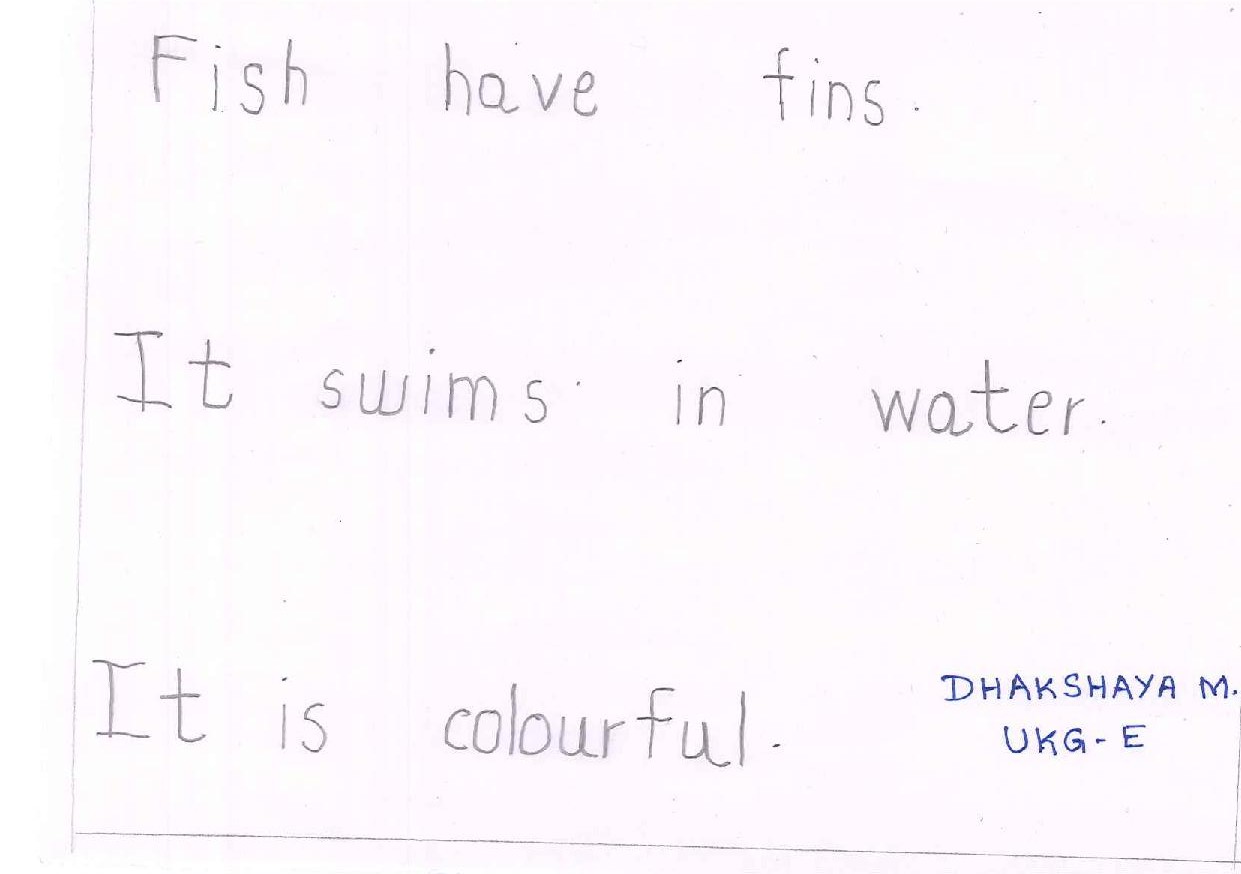 Fish have fins.
It swims in water.
It is colourful.
DHAKSHAYA M.
UKG-E